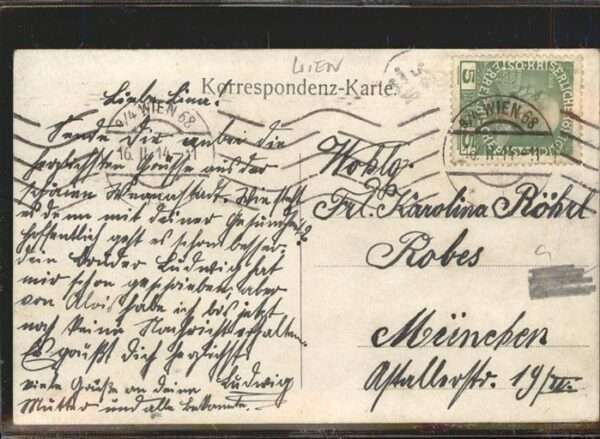 WIEN
Korrespondenz-Karte.
9/4 WIEN 68
16. II. 14 - 11
5
9/4 WIEN 68
16. II. 14 - 11
Liebe Lina!
Sende Dir anbei die
herzlichsten Grüsse aus der
schönen Wienerstadt. Wie steht
es denn mit deiner Gesundheit?
hoffentlich geht es schon besser.
dein Bruder Ludwich hat
mir schon geschrieben, aber
von Alois habe ich bis jetzt
noch keine Nachricht erhalten
Es grüßt dich herzlichst
Ludwig
viele Grüsse an deine
Mutter und alle bekannte.
Wohlg.
Frl. Karolina Röhrl
Robes
München
Astallerstr. 19/III.